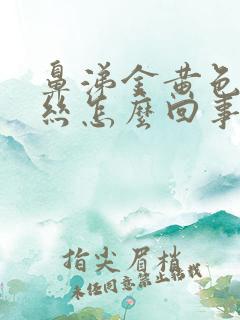 鼻涕金黄色
丝怎麽回事
指尖眉梢
未经同意禁止转载